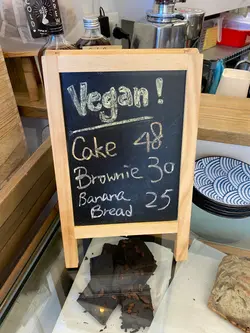 Vegan!
Cake 48
Brownie 30
Banana
Bread 25